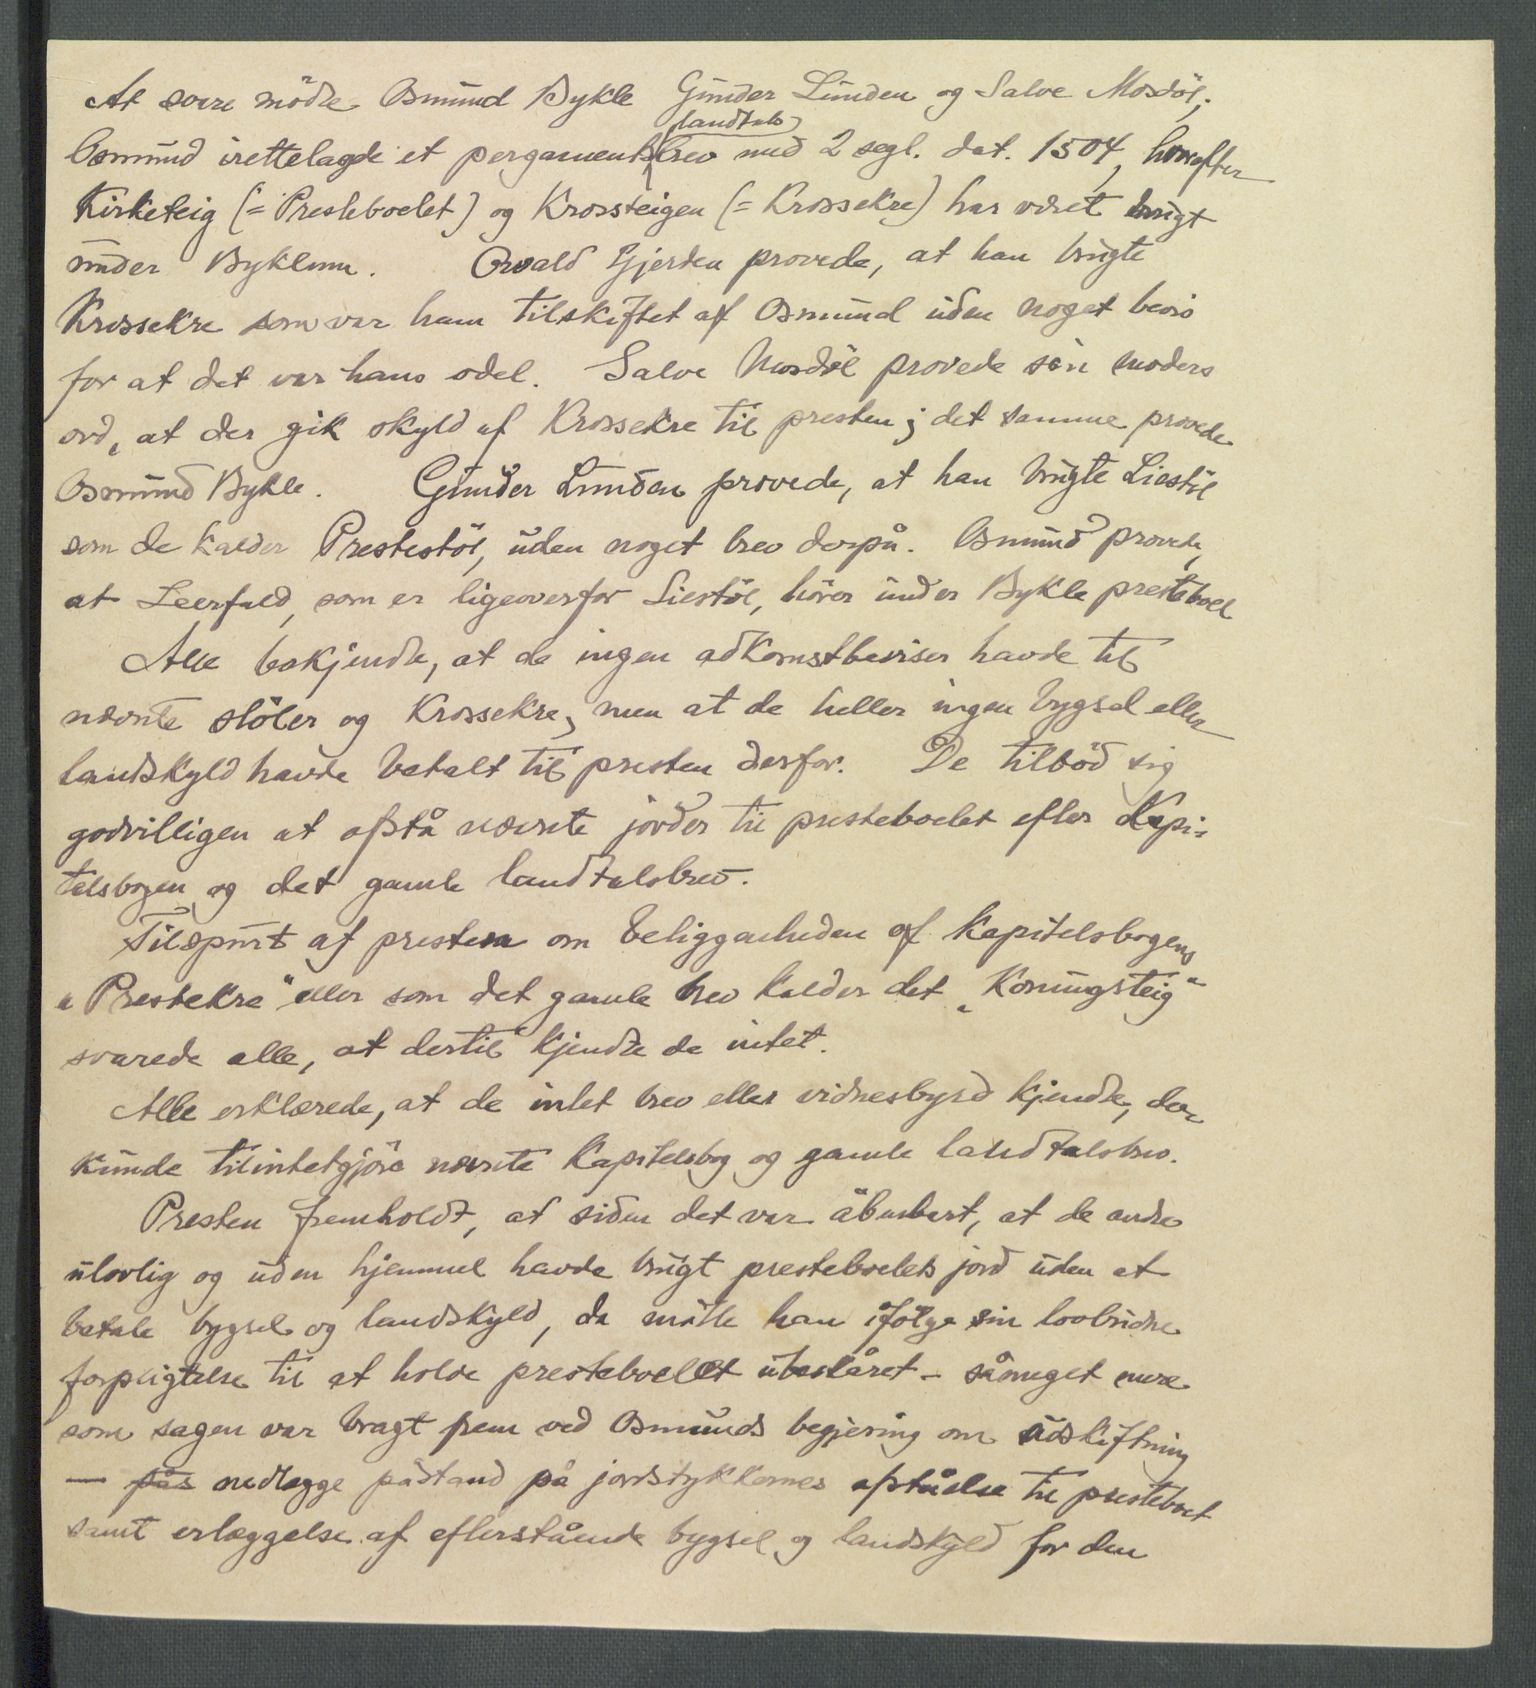 At svare mödte Osmund Bykle Gunder Lunden og Salve Mosdöl,
landtals
Osmund irettelagde et pergamentsbrev med 2 segl. dat. 1504, hvorefter
Kirketeig (= Presteboelet) og Krossteigen (= Krossekre) har været brugt
under Byklum. Orvald Gjerden provede, at han brugte
Krossekre som var ham tilskiftet af Osmund uden noget bevis
for at det var hans odel. Salve Mosdöl provede sin moders
ord, at der gik skyld af Krossekre til presten; det samme provede
Osmund Bykle. Gunder Lunden provede, at han brugte Liestöl
som de kalder Prestestöl, uden noget brev derpå. Osmund provede,
at Leerfald, som er ligeoverfor Liestöl, hörer under Bykle presteboel
Alle bekjendte, at de ingen adkomstbeviser havde til
nævnte stöler og Krossekre, men at de heller ingen bygsel eller
landskyld havde betalt til presten derfor. De tilböd sig
godvilligen at afstå nævnte jorder til presteboelet efter Kapi-
telsbogen og det gamle landtalsbrev.
Tilspurt af presten om beliggenheden af Kapitelsbogens
"Prestekre" eller som det gamle brev kalder det "Konungsteig"
svarede alle, at dertil kjendte de intet.
Alle erklærede, at de intet brev eller vidnesbyrd kjendte, der
kunde tilintetgjöre nævnte Kapitelsbog og gamle landtalsbrev.
Presten fremholdt, at siden det var åbenbart, at de andre
ulovlig og uden hjemmel havde brugt presteboelets jord uden at
betale bygsel og landskyld, da måtte han ifölge sin lovbudne
forpligtelse til at holde presteboelet ubeskåret – såmeget mere
som sagen var bragt frem ved Osmunds begjering om udskiftning
— pås nedlægge påstand på jordstykkernes afståelse til presteboet
samt erlæggelse af efterstående bygsel og landskyld for den